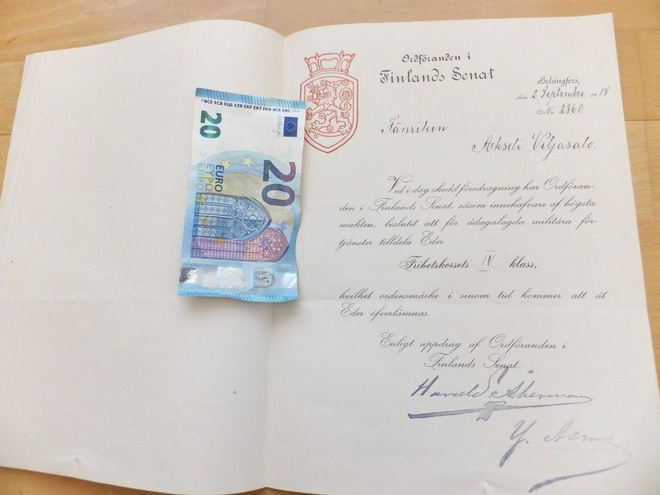 20
20
EURO
ΕΥΡΩ
Ordföranden i
Finlands Senat
Helsingfors,
den 2 September 1918
No 2860.
Fänriken
Akseli Viljasalo.
Vid i dag skedd föredragning har Ordföran-
den i Finlands Senat, såsom innehafvare af högsta
makten, beslutit att för ådagalagda militära för-
tjänster tilldela Eder.
Frihetskorsets IV klass,
hvilket ordensmärke i sinom tid kommer att åt
Eder öfverlämnas.
Enligt uppdrag af Ordföranden i
Finlands Senat:
Harald Åkerman